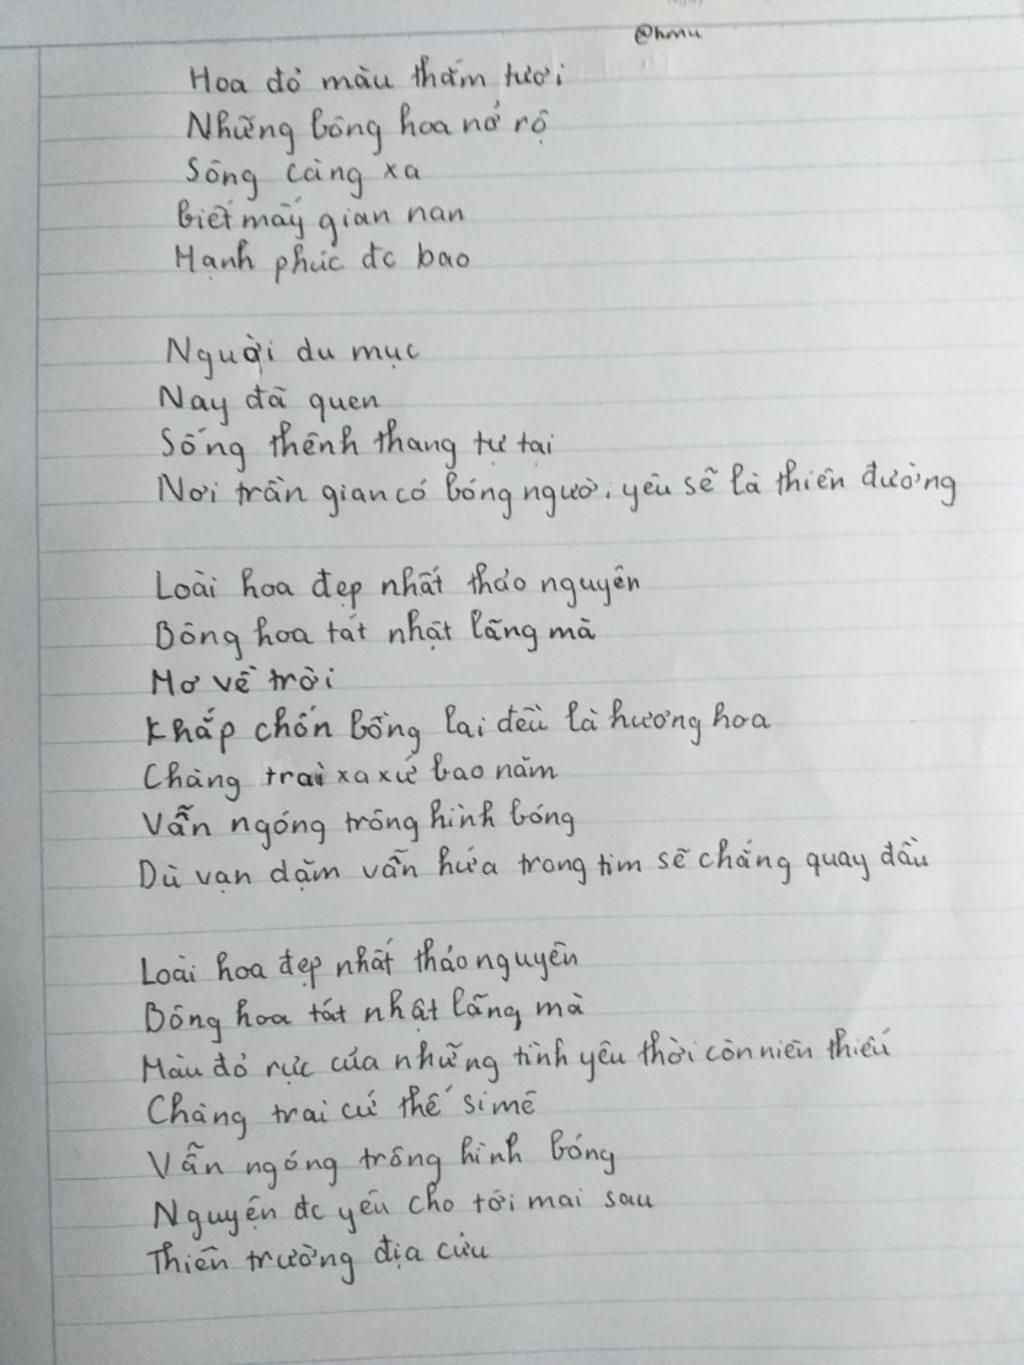 @hmu
Hoa đỏ màu thắm tươi
Những bông hoa nở rộ
Sông càng xa
Biết mấy gian nan
Hạnh phúc đc bao
Người du mục
Nay đã quen
Sống thênh thang tự tại
Nơi trần gian có bóng người yêu sẽ là thiên đường
Loài hoa đẹp nhất thảo nguyên
Bông hoa tát nhật lãng mà
Mơ về trời
Khắp chốn bồng lai đều là hương hoa
Chàng trai xa xứ bao năm
Vẫn ngóng trông hình bóng
Dù vạn dặm vẫn hứa trong tim sẽ chẳng quay đầu
Loài hoa đẹp nhất thảo nguyên
Bông hoa tát nhật lãng mà
Màu đỏ rực của những tình yêu thời còn niên thiếu
Chàng trai cứ thế si mê
Vẫn ngóng trông hình bóng
Nguyện đc yêu cho tới mai sau
Thiên trường địa cửu